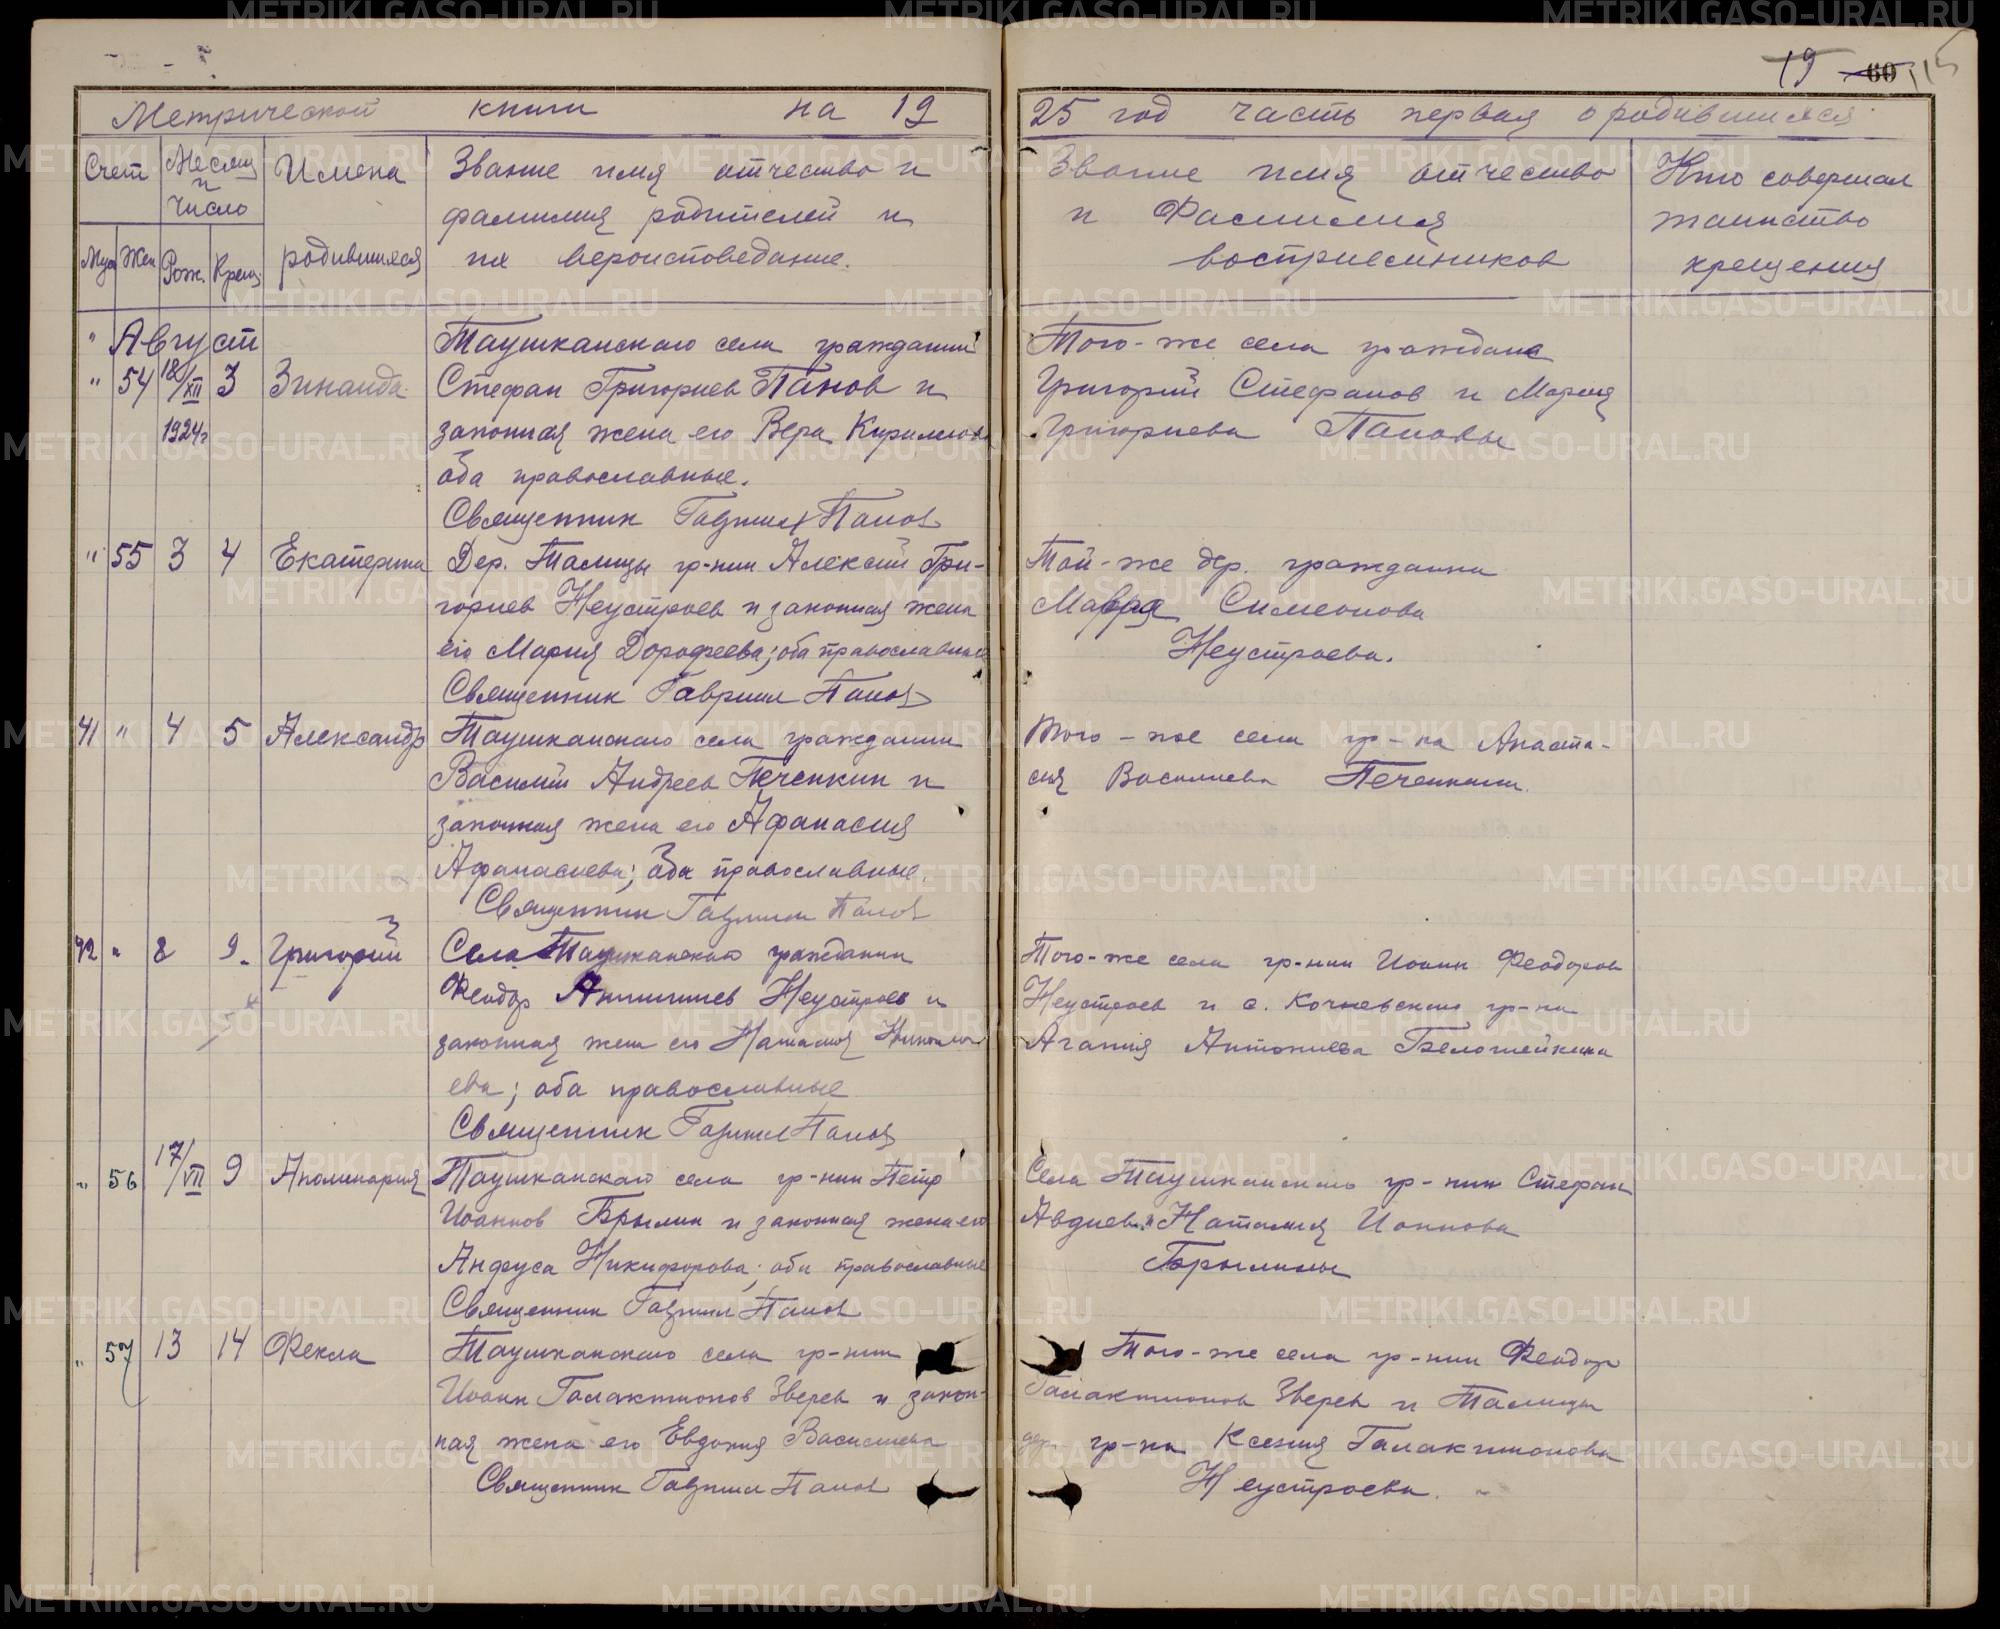 19 60 115
Метрической книги на 19
25 год часть первая о родившихся
Счет
Месяц и число
Имена родившихся
Звание имя отчество и
фамилия родителей и
их вероисповедание.
Муж Жен Рож. Крещ.
Звание имя отчество
и Фамилия
восприемников
Кто совершал
таинство
крещения
" Август
" 54 18/XII 1924г 3 Зинаида
Таушканского села гражданин
Стефан Григориев Панов и
законная жена его Вера Кирилова
оба православные.
Священник Гавриил Панов
Того-же села граждане
Григорий Стефанов и Мария
Григориева Пановы
" 55 3 4 Екатерина
Дер. Талицы гр-нин Алексий Гри-
гориев Неустроев и законная жена
его Мария Дорофеева; оба православные
Священник Гавриил Панов
Той-же дер. гражданка
Мавра Симеонова
Неустроева.
41 " 4 5 Александр
Таушканского села гражданин
Василий Андреев Печенкин и
законная жена его Афанасия
Афанасиева; оба православные.
Священник Гавриил Панов
Того-же села гр-ка Анаста-
сия Василиева Печенкина.
42 " 8 9 Григорий
Села Таушканского гражданин
Феодор Неустроев и
законная жена его Наталия Никола-
ева; оба православные
Священник Гавриил Панов
Того-же села гр-нин Иоанн Феодоров
Неустроев и с. Кочневского гр-ка
Агапия Антониева Белошейкина
" 56 17/VII 9 Аполинария
Таушканского села гр-нин Петр
Иоаннов Брылин и законная жена его
Анфуса Никифорова; оба православные
Священник Гавриил Панов
Села Таушканского гр-нин Стефан
Авдиев и Наталия Иоаннова
Брылины
" 57 13 14 Фекла
Таушканского села гр-нин
Иоанн Галактионов Зверев и закон-
ная жена его Евдокия Василиева
Священник Гавриил Панов
Того-же села гр-нин Феодор
Галактионов Зверев и Талицы
дер. гр-ка Ксения Галактионова
Неустроева.
METRIKI.GASO-URAL.RU